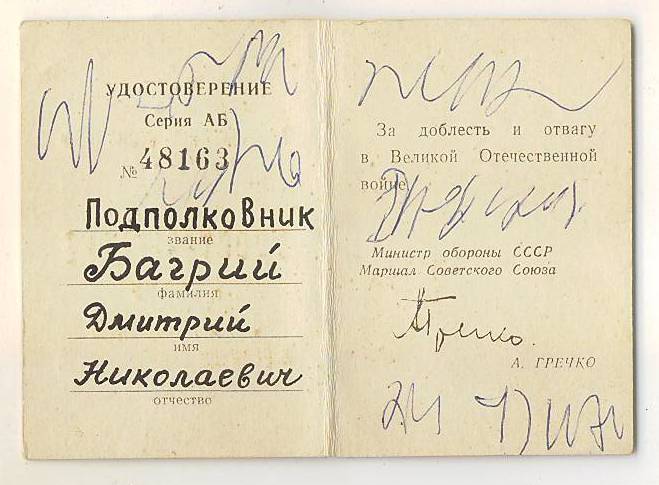 УДОСТОВЕРЕНИЕ
Серия АБ
№ 48163
Подполковник
звание
Багрий
фамилия
Дмитрий
имя
Николаевич
отчество
За доблесть и отвагу
в Великой Отечественной
войне
Министр обороны СССР
Маршал Советского Союза
Гречко
А. ГРЕЧКО